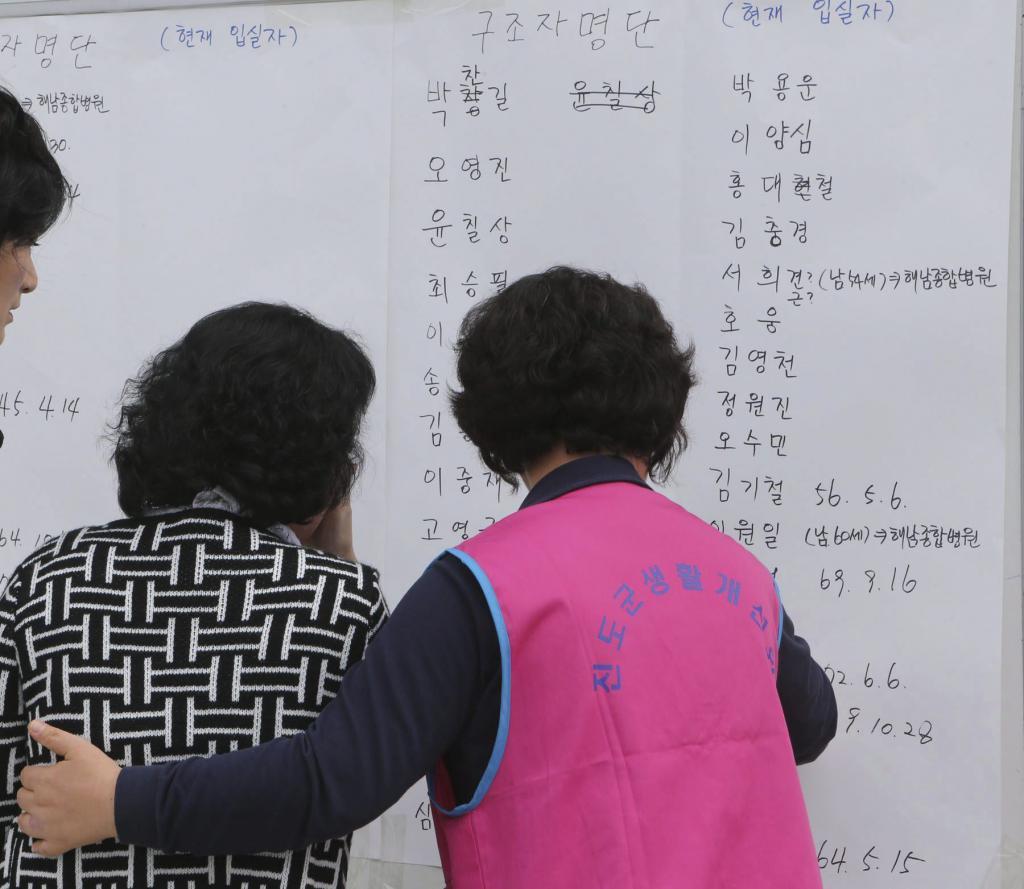 자명단 (현재 입실자)
⇒해남종합병원
30.
45. 4. 14
구조자명단 (현재 입실자)
박찬길 윤칠상
오영진
윤칠상
최승필
이
송
김
이중재
고영
심
박용운
이양심
홍대철
김충경
서희견? (남 54세)⇒해남종합병원
근?
호웅
김영천
정원진
오수민
김기철 56. 5. 6.
원일 (남 60세)⇒해남종합병원
69. 9. 16
02. 6. 6.
9. 10. 28
64. 5. 15
진도군생활개